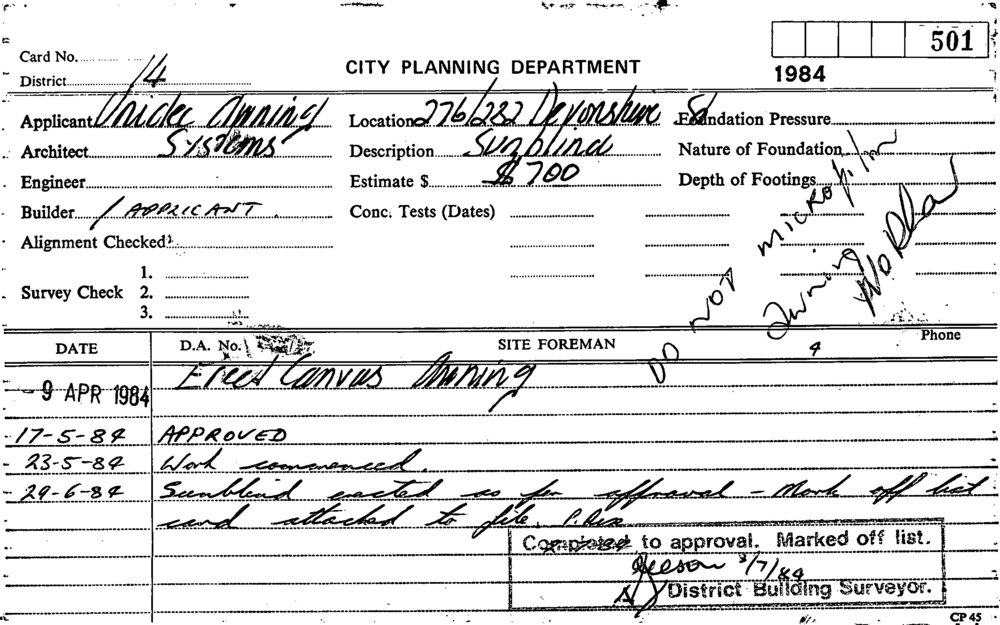 501
Card No.
CITY PLANNING DEPARTMENT
1984
District 14
Applicant Unidec Awning Location 276/282 Devonshire St Foundation Pressure
Architect Systems Description Sunblind Nature of Foundation
Engineer Estimate $ $700 Depth of Footings
Builder / APPLICANT. Conc. Tests (Dates)
Alignment Checked
1.
Survey Check 2.
3.
DO NOT microfilm
Awning
DATE D.A. No. SITE FOREMAN Phone
- 9 APR 1984 Erect Canvas Awning
17-5-84 APPROVED
23-5-84 Work commenced.
29-6-84 Sunblind erected as per approval - Mark off list
card attached to file. P. Rix
Completed to approval. Marked off list.
3/7/84
District Building Surveyor.
CP 45